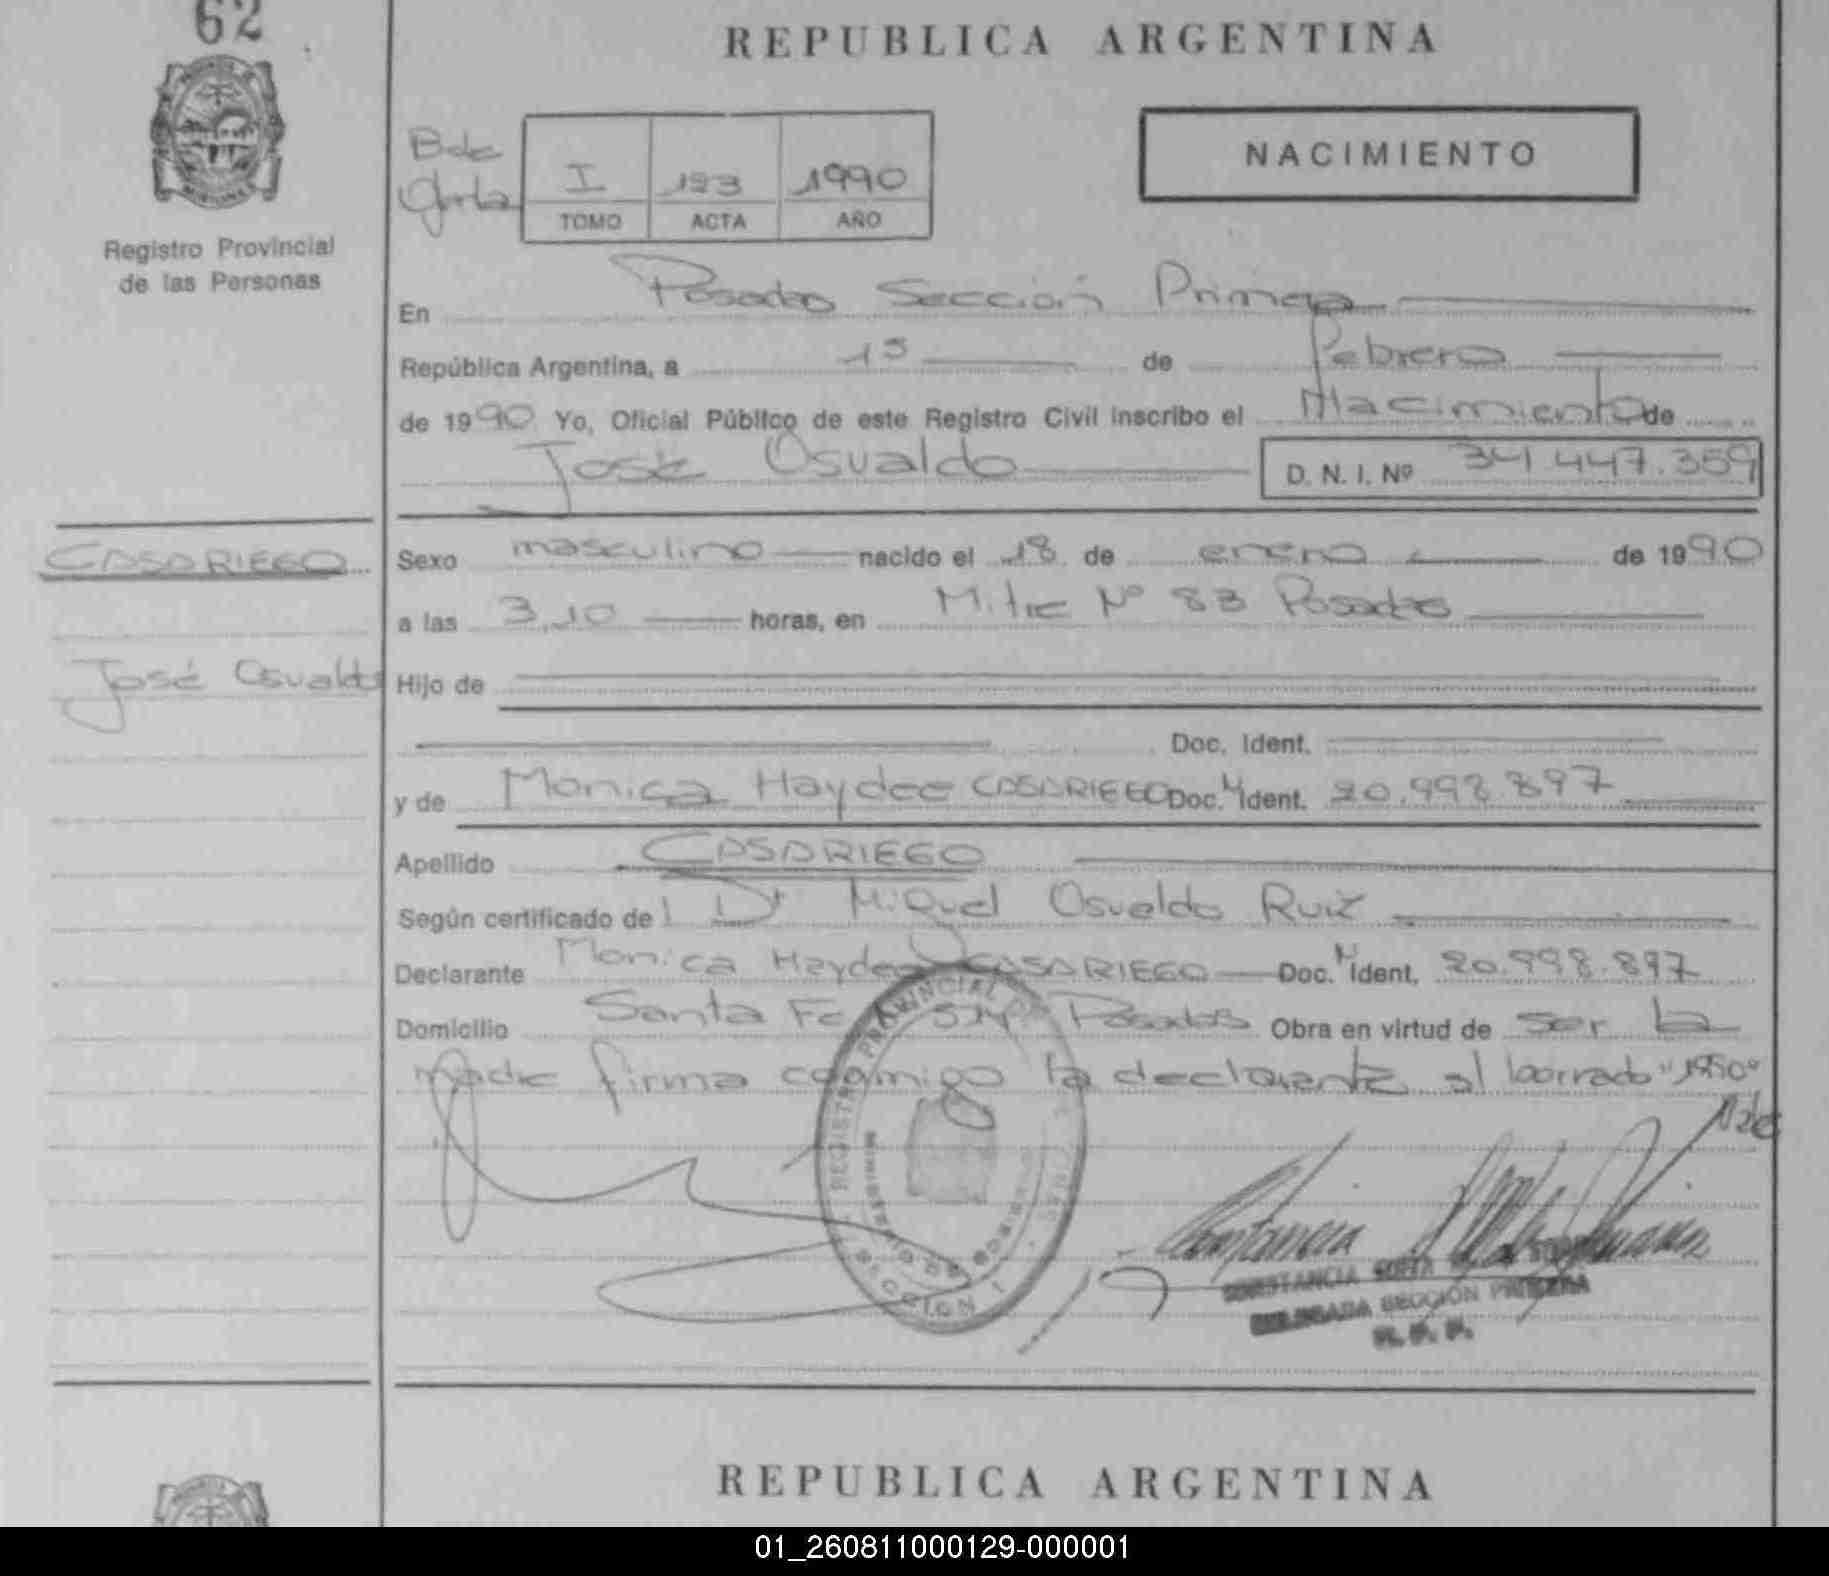 62
REPUBLICA ARGENTINA
Registro Provincial
de las Personas
I 1990
TOMO ACTA AÑO
NACIMIENTO
En Posadas Sección Primera
República Argentina, a 15 de Febrero
de 1990 Yo, Oficial Público de este Registro Civil inscribo el Nacimiento de
José Osvaldo D. N. I. Nº 34.447.359
CASARIEGO
José Osvaldo
Sexo masculino nacido el 18 de enero de 1990
a las 3,10 horas, en Mitre Nº 83 Posadas
Hijo de
Doc. Ident.
y de Monica Haydee CASARIEGO Doc. Ident. 20.998.897
Apellido CASARIEGO
Según certificado de Dr Miguel Osvaldo Ruiz
Declarante Monica Haydee CASARIEGO Doc. Ident. 20.998.897
Domicilio Santa Fe Posadas Obra en virtud de ser la
madre firma conmigo la declarante
REGISTRO PROVINCIAL DE
SECCION 1
CONSTANCIA
DELEGADA SECCIÓN PRIMERA
R. P. P.
REPUBLICA ARGENTINA
01_260811000129-000001